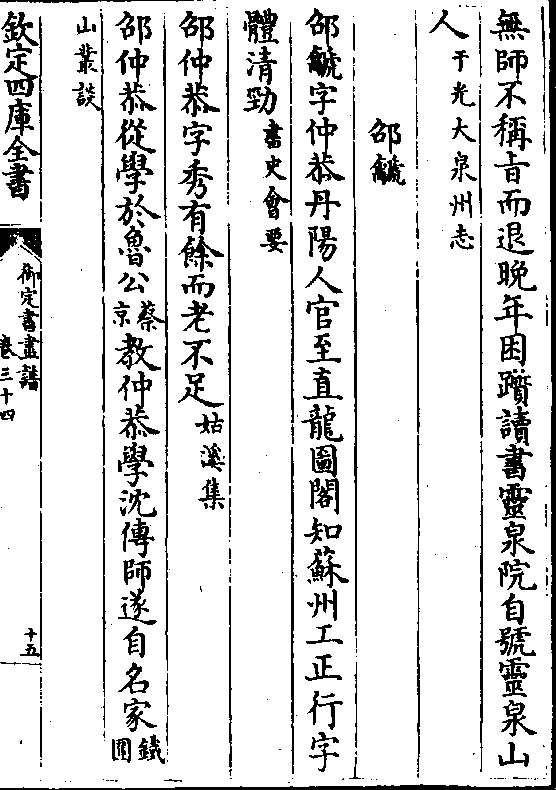 無師不稱㫖而退晚年困躓讀書靈泉院自號靈泉山
人 于光大泉州志
邵䶵
邵䶵字仲恭丹陽人官至直龍圖閣知蘇州工正行字
體清勁 書史會要
邵仲恭字秀有餘而老不足 姑溪集
邵仲恭從學於魯公蔡京教仲恭學沈傳師遂自名家 鐵圍
山叢談
欽定四庫全書
御定書畫譜
卷三十四
十五